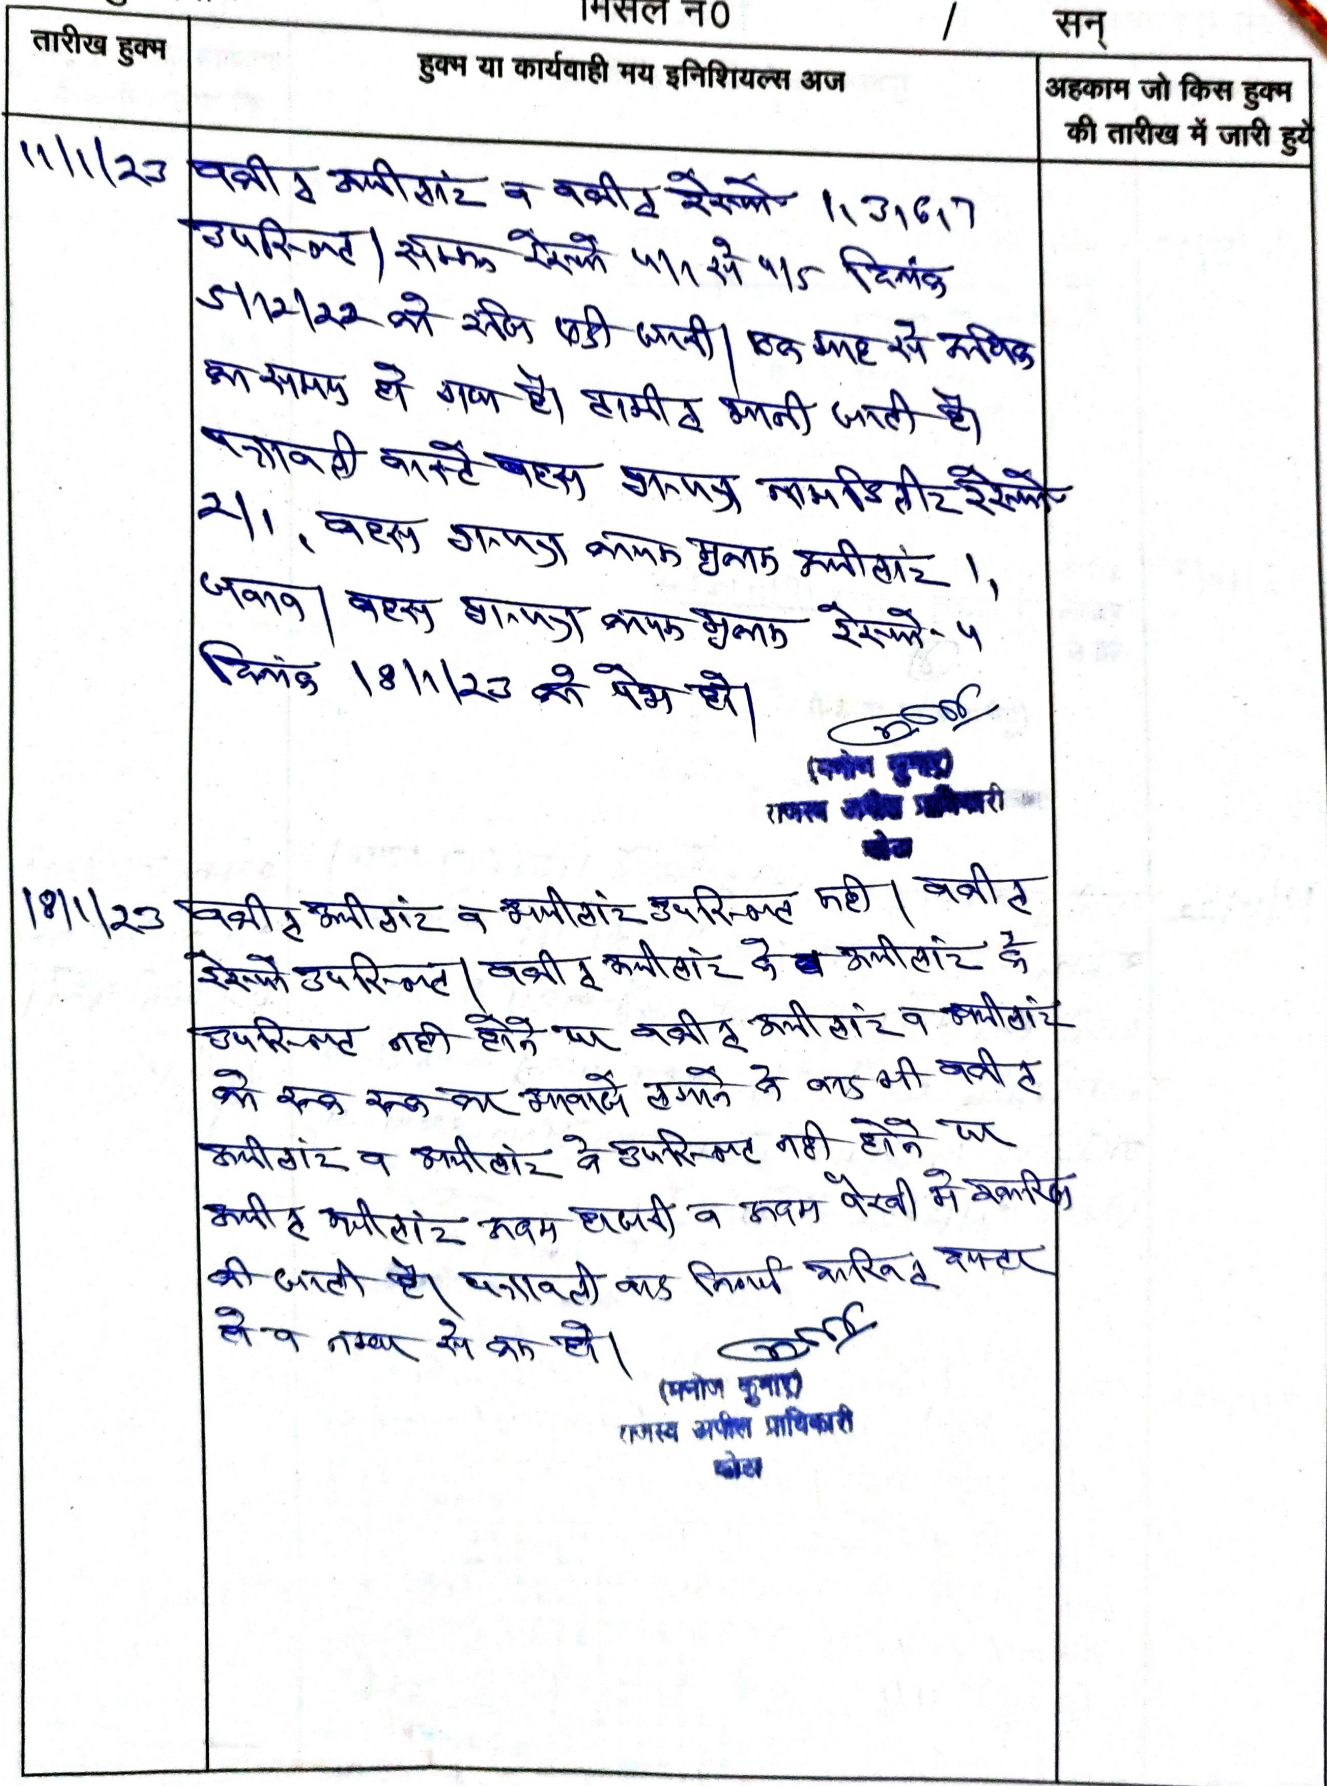 मिसल न0 / सन्
तारीख हुक्म
हुक्म या कार्यवाही मय इनिशियल्स अज
अहकाम जो किस हुक्म
की तारीख में जारी हुये
11/1/23 वकील अपीलांट व वकील रेस्पो 1, 3, 6, 7
उपस्थित। सम्मन रेस्पो 4/1 से 4/5 दिनांक
5/12/22 को रजि ए.डी जारी। एक माह से अधिक
का समय हो गया है। तामील मानी जाती है।
पत्रावली वास्ते बहस प्रा०पत्र नाम डिलीट रेस्पो
2/1, बहस प्रा०पत्र कायम मुकाम अपीलांट 1,
जवाब। बहस प्रा०पत्र कायम मुकाम रेस्पो- 4
दिनांक 18/1/23 को पेश हो।
(मनोज कुमार)
राजस्व अपील प्राधिकारी
कोटा
18/1/23 वकील अपीलांट व अपीलांट उपस्थित नही। वकील
रेस्पो उपस्थित। वकील अपीलांट के व अपीलांट के
उपस्थित नही होने पर वकील अपीलांट व अपीलांट
को रूक रूक कर आवाजे लगाने के बाद भी वकील
अपीलांट व अपीलांट के उपस्थित नही होने पर
अपील अपीलांट अदम हाजरी व अदम पैरवी मे खारिज
की जाती है। पत्रावली बाद निर्णय दाखिल दफ्तर
हो व नम्बर से कम हो।
(मनोज कुमार)
राजस्व अपील प्राधिकारी
कोटा